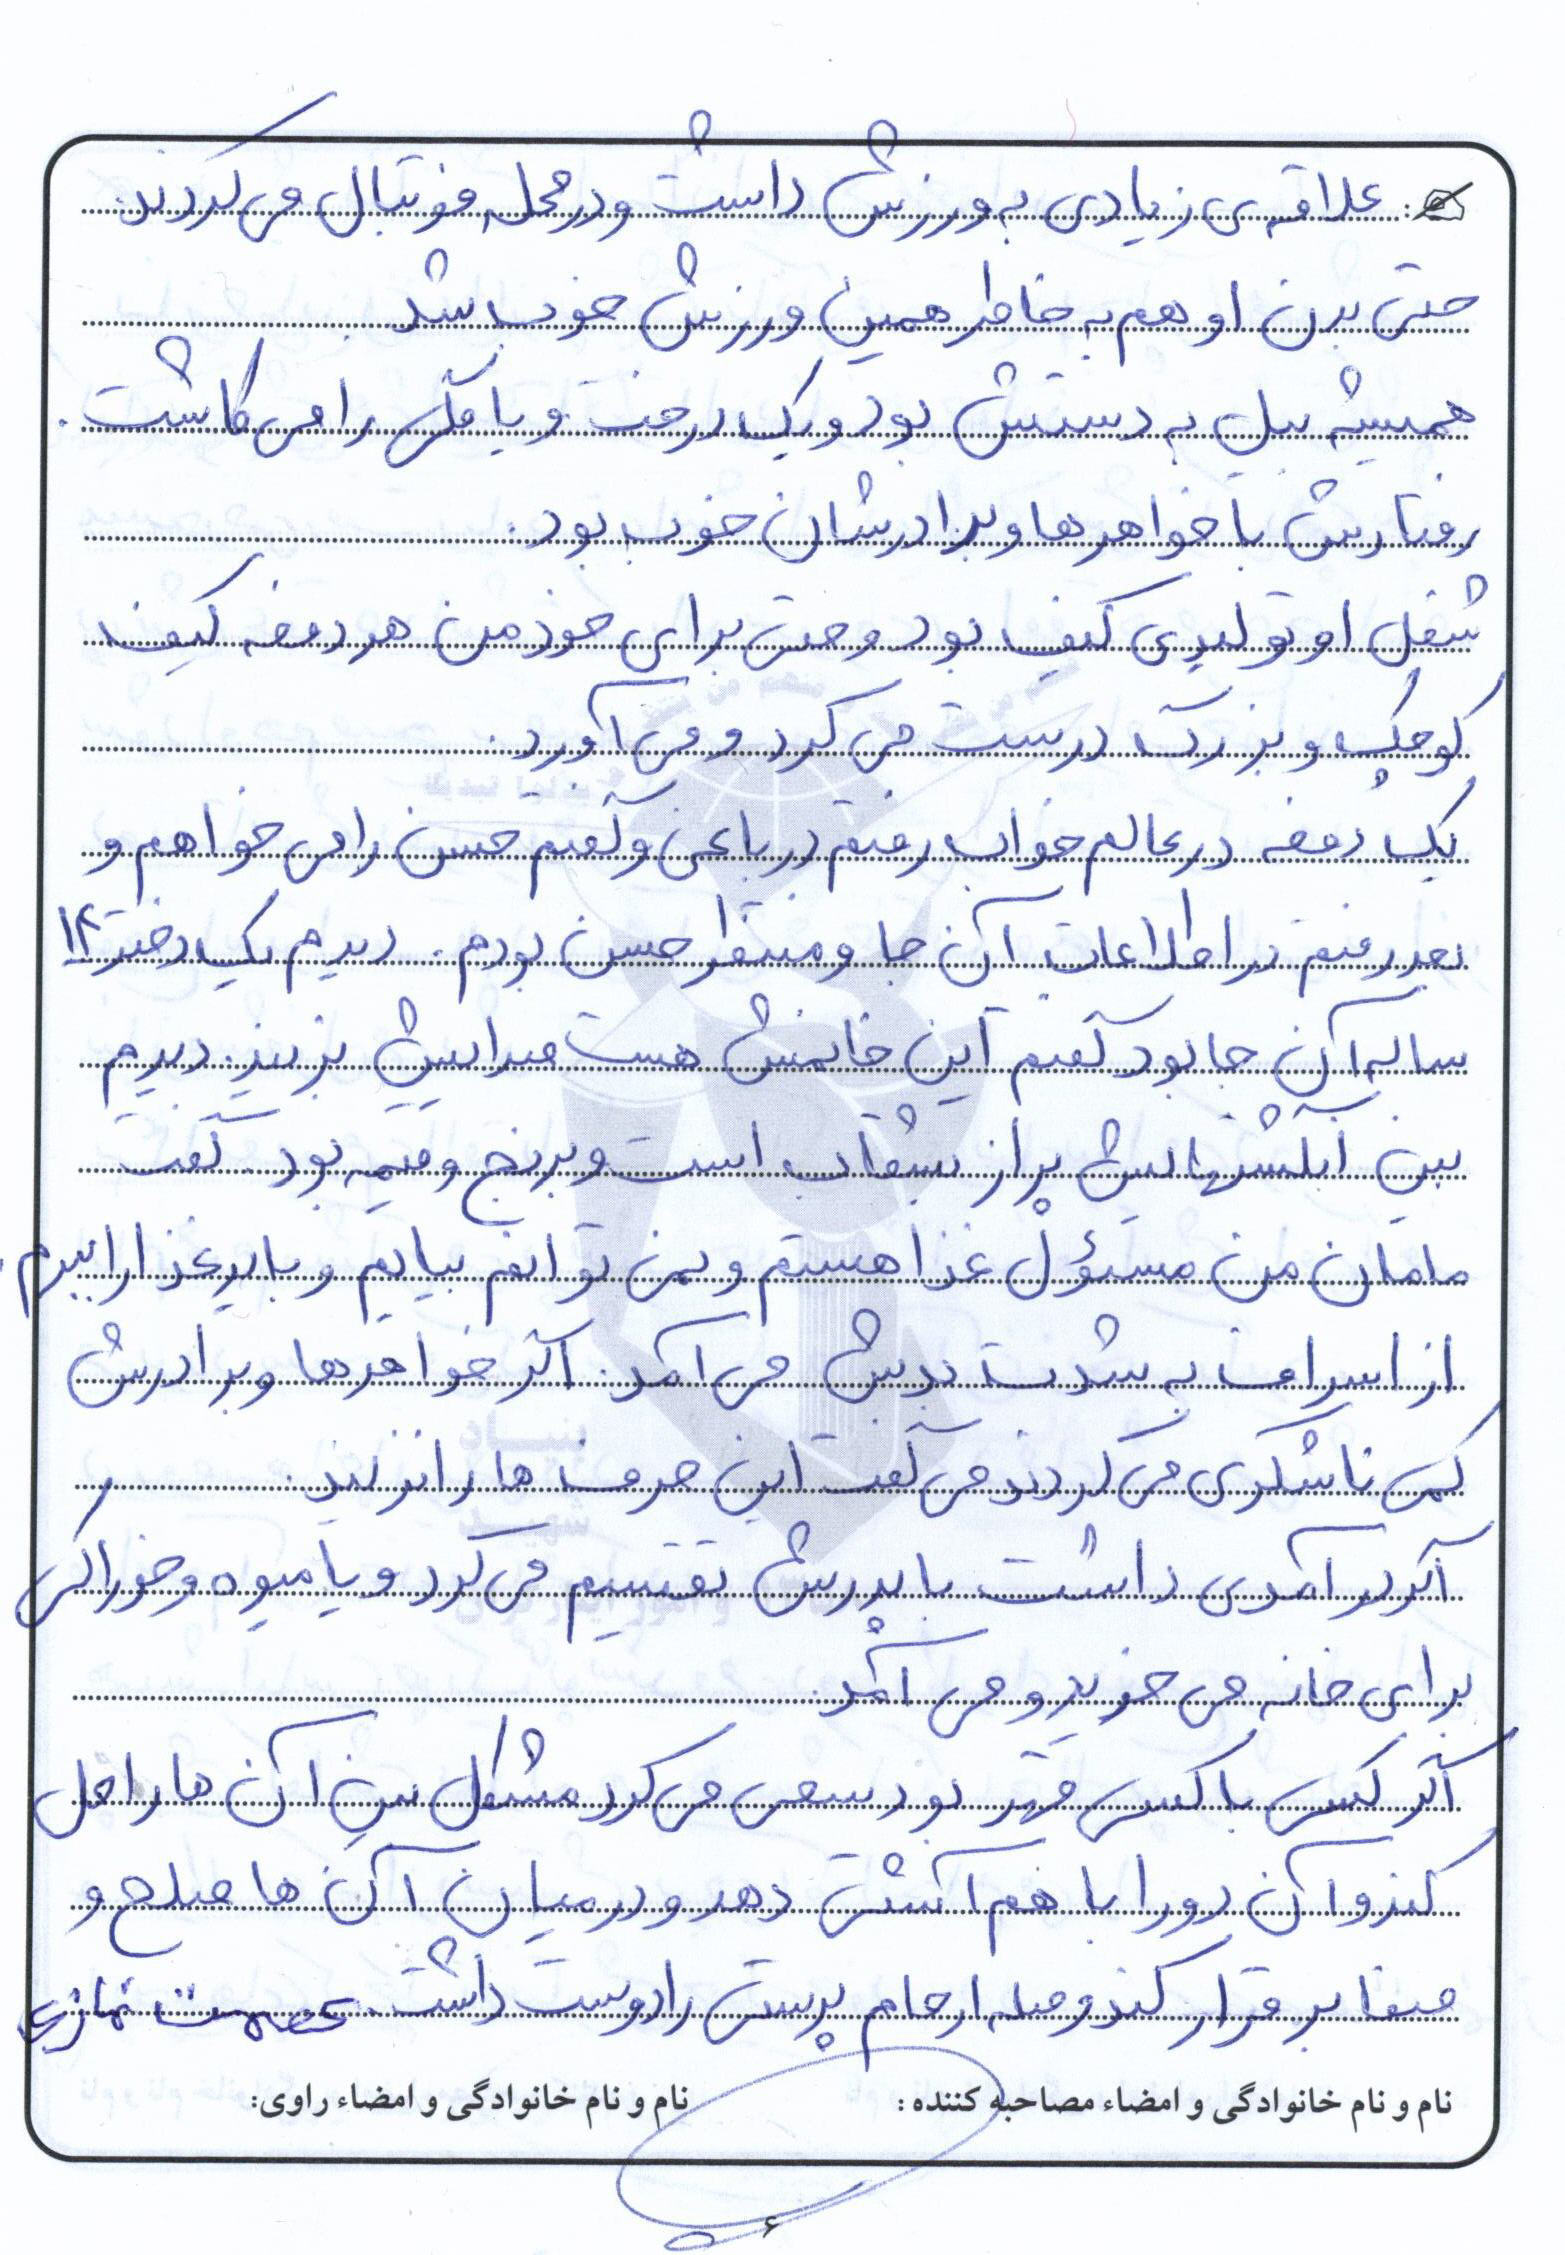 علاقه‌ی زیادی به ورزش داشت و در محله فوتبال می‌کردند.
حتی بدن او هم به خاطر همین ورزش خوب شد.
همیشه بیل به دستش بود و یک درخت و یا گلی را می‌کاشت.
رفتارش با خواهرها و برادرشان خوب بود.
شغل او تولیدی کیف بود و حتی برای خود من هر دفعه کیف
کوچک و بزرگ درست می‌کرد و می‌آورد.
یک دفعه در عالم خواب رفتم در باغی و گفتم حسن را می‌خواهم و
بعد رفتم در اطلاعات آن جا و منتظر حسن بودم. دیدم یک دختر ۱۴
ساله آن جا بود گفتم این خانمش هست صدایش بزنید. دیدم
بین انگشتهایش پر از بشقاب است و برنج و قیمه بود. گفت
مامان من مسئول غذا هستم و نمی توانم بیایم و باید غذا را ببرم.
از اسراف به شدت بدش می‌آمد. اگر خواهرها و برادرش
کمی ناشکری می‌کردند می‌گفت این حرف ها را نزنید.
اگر درآمدی داشت با پدرش تقسیم می‌کرد و یا میوه و خوراکی
برای خانه می خرید و می آمد.
اگر کسی با کسی قهر بود سعی می‌کرد مشکل بینِ آن ها را حل
کند و آن دو را با هم آشتی دهد و در میان آن ها صلح و
صفا برقرار کند و صله ارحام پرستی را دوست داشت. عصمت نمازی
نام و نام خانوادگی و امضاء مصاحبه کننده: نام و نام خانوادگی و امضاء راوی:
۶